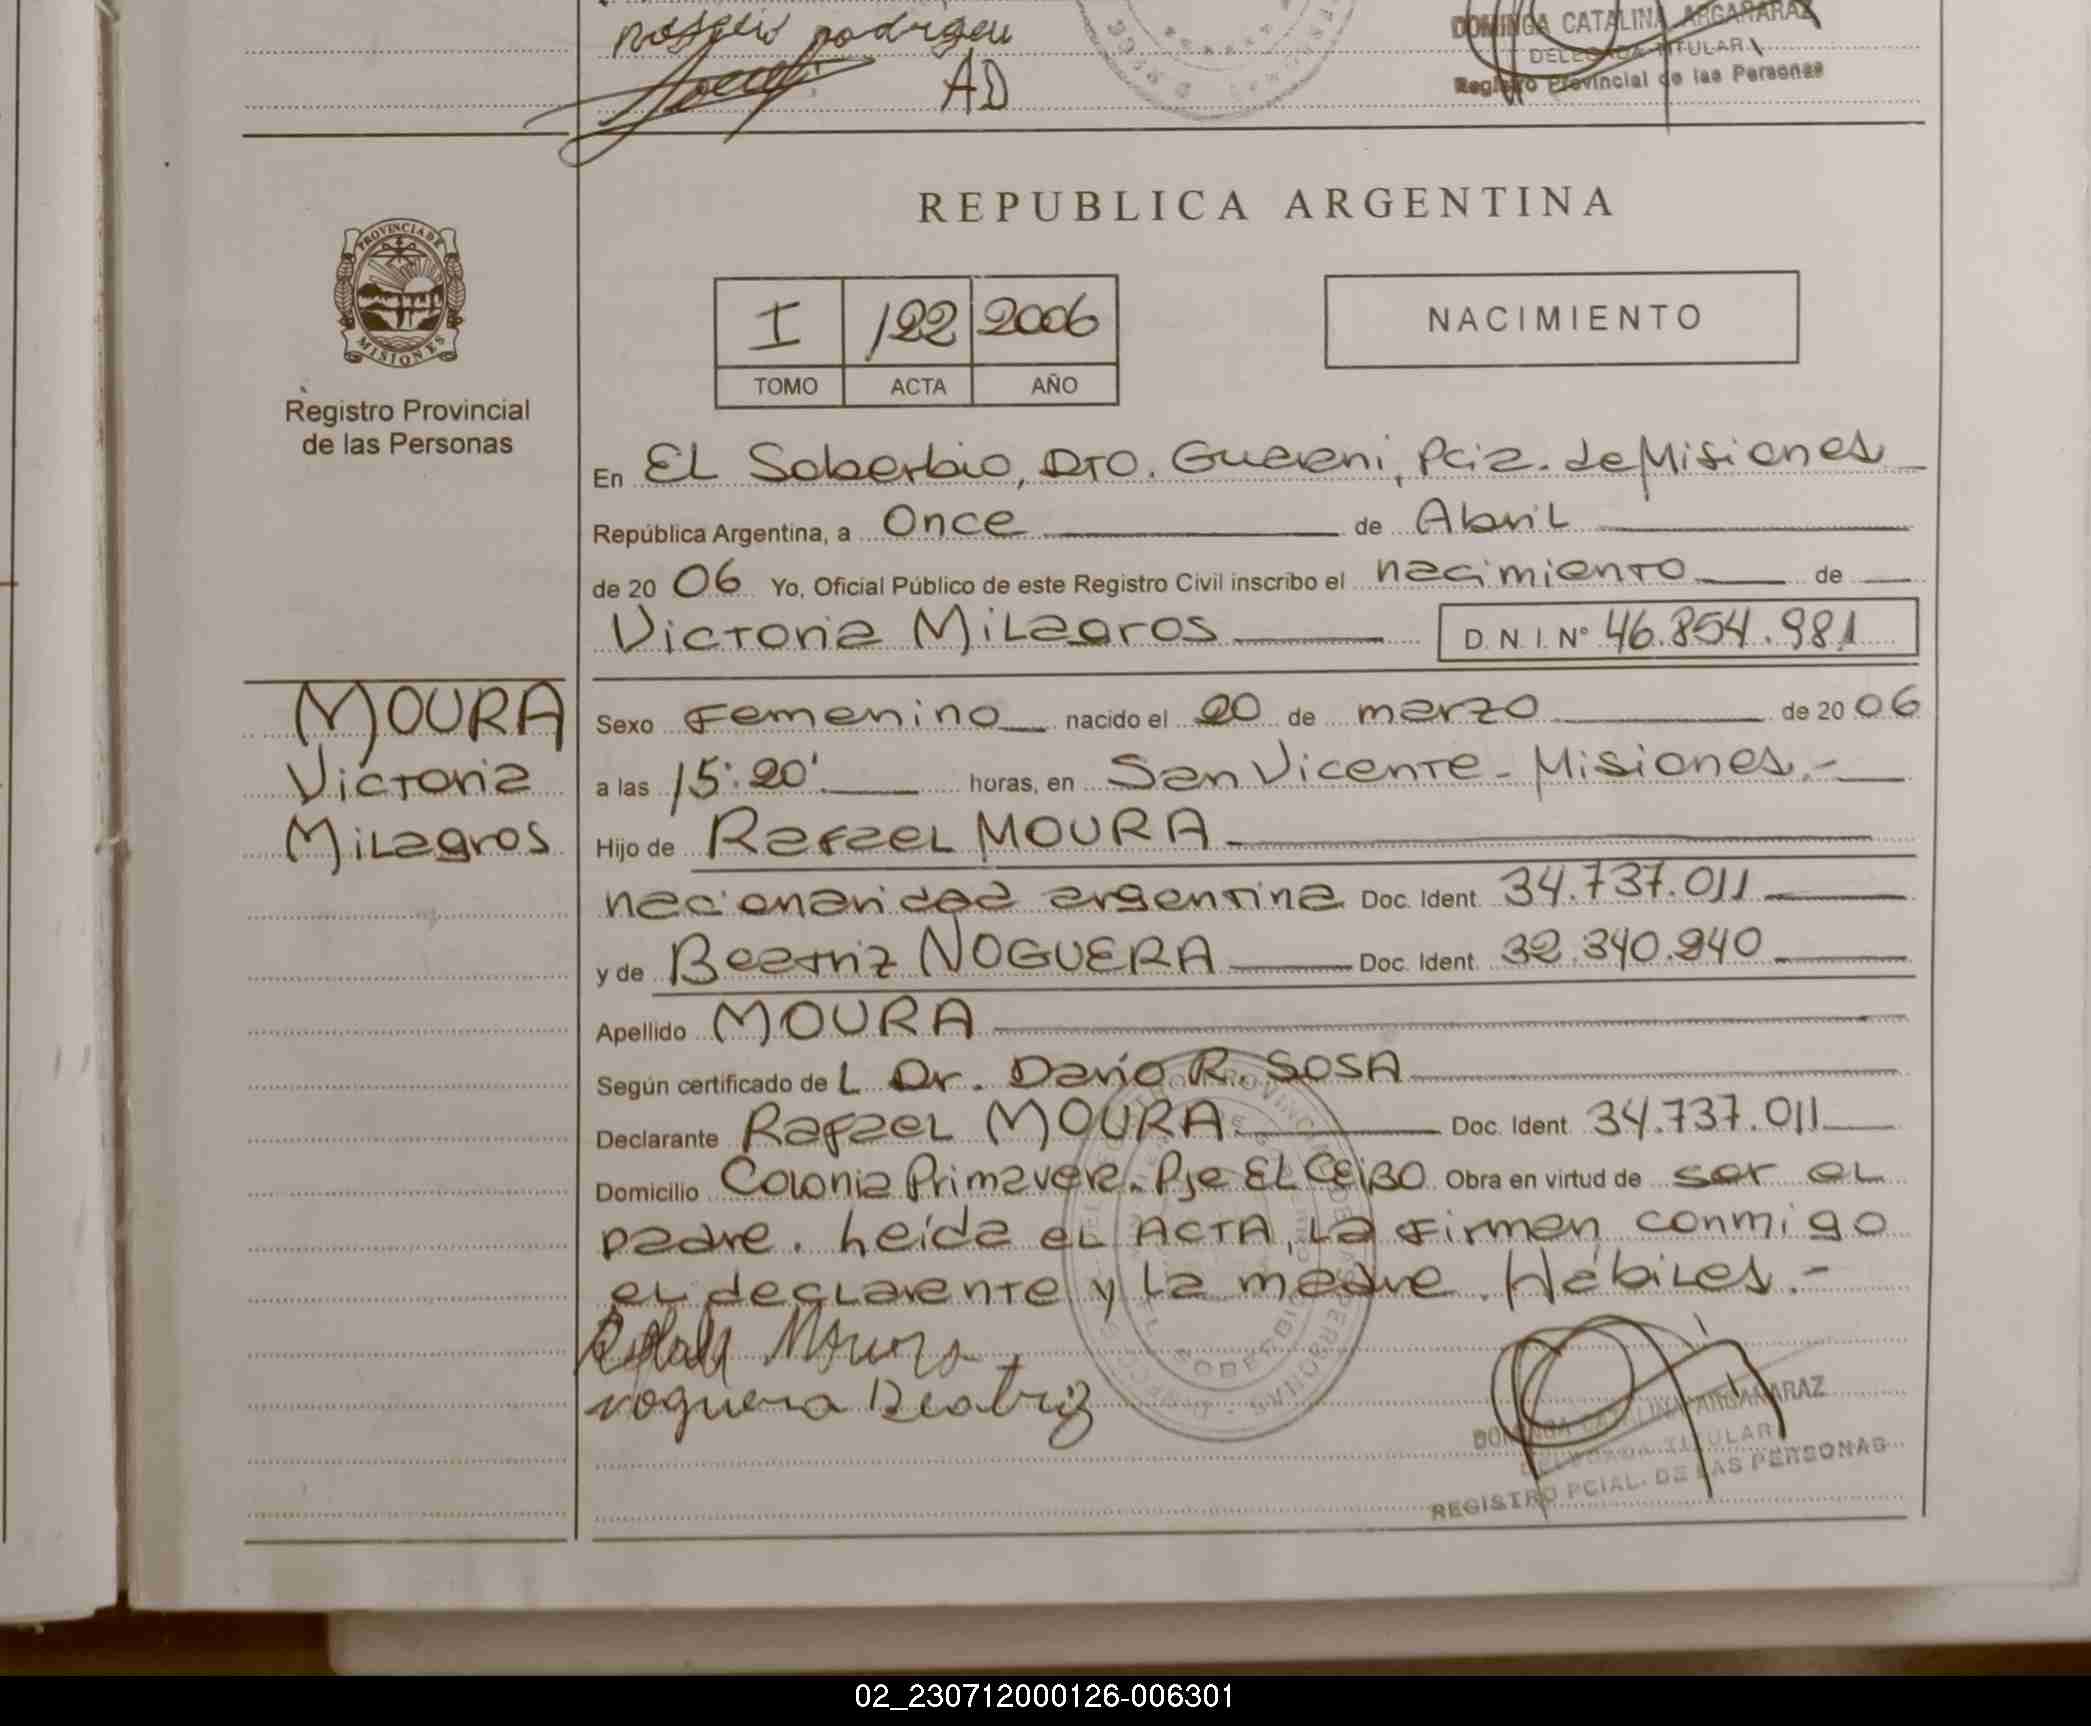 AD
DOMINGA CATALINA ARGAÑARAZ
DELEGADA TITULAR
Registro Provincial de las Personas
REPUBLICA ARGENTINA
PROVINCIA DE
MISIONES
Registro Provincial
de las Personas
I 122 2006
TOMO ACTA AÑO
NACIMIENTO
En EL Soberbio, DTO. Guarani, Pcia. de Misiones
República Argentina, a Once de Abril
de 20 06 Yo, Oficial Público de este Registro Civil inscribo el nacimiento de
Victoria Milagros D.N.I. Nº 46.854.981
MOURA
Victoria
Milagros
Sexo Femenino nacido el 20 de marzo de 20 06
a las 15:20' horas, en San Vicente - Misiones.-
Hijo de Rafael MOURA
nacionalidad argentina Doc. Ident. 34.737.011
y de Beatriz NOGUERA Doc. Ident. 32.340.240
Apellido MOURA
Según certificado de L Dr. Dario R. SOSA
Declarante Rafael MOURA Doc. Ident. 34.737.011
Domicilio Colonia Primavera. Pje EL CEIBO Obra en virtud de ser el
padre. Leída el ACTA, la firman conmigo
el declarante y la madre. Hábiles.-
Moura
noguera Beatriz
DOMINGA CATALINA ARGAÑARAZ
DELEGADA TITULAR
REGISTRO PCIAL. DE LAS PERSONAS
02_230712000126-006301